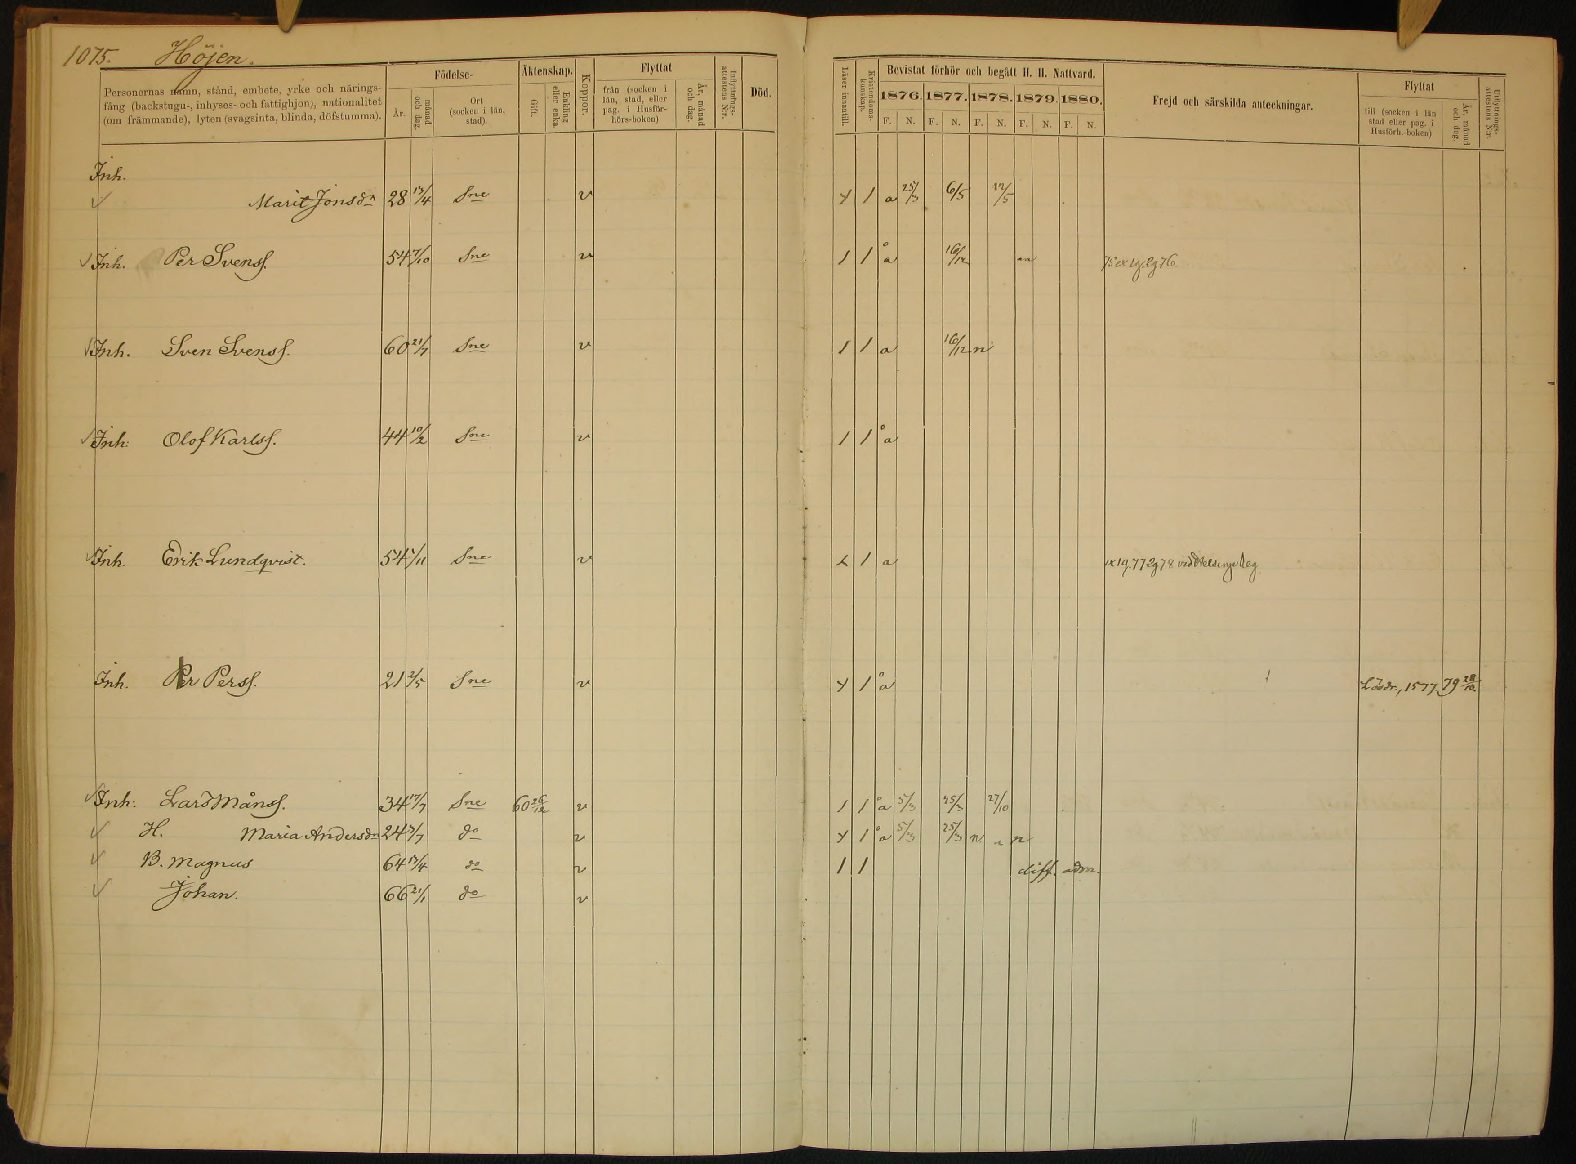 1075. Höjen.
Personornas namn, stånd, embete, yrke och närings-
fång (backstugu-, inhyses- och fattighjon), nationalitet
(om främmande), lyten (svagsinta, blinda, döfstumma).
Födelse-
År.
månad och dag.
Ort
(socken i län, stad).
Äktenskap.
Gift.
Enkling eller enka.
Koppor.
Flyttat
från (socken i
län, stad, eller
pag. i Husför-
hörs-boken)
År, månad och dag.
Inflyttnings-attestens N:r.
Död.
Läser innantill.
Kristendoms-kunskap.
Bevistat förhör och begått H. H. Nattvard.
1876. 1877. 1878. 1879. 1880.
F. N. F. N. F. N. F. N. F. N.
Frejd och särskilda anteckningar.
Flyttat
till (socken i län
stad eller pag. i
Husförh.-boken)
År, månad och dag.
Utflyttnings-attestens N:r.
Inh.
Marit Jonsdr 28 13/4 Sne v 1 a 25/3 6/5 12/5
Inh. Per Svenss. 54 7/10 Sne v 1 1 å 16/12
Inh. Sven Svenss. 60 21/7 Sne v 1 1 a 16/12 n
Inh. Olof Karlss. 44 10/2 Sne v 1 1 å
Inh. Erik Lundqvist. 54 1/11 Sne v 1 a
Inh. Per Perss. 21 2/5 Sne v 1 å 1577 79 28/10
Inh. Lars Månss. 34 17/7 Sne 60 26/12 v 1 1 å 5/3 25/3 27/10
H. Maria Andersdr 24 3/7 do v 1 å 5/3 25/3 n n n
B. Magnus 64 17/4 do v 1 1 diff. adm.
Johan. 66 21/1 do v